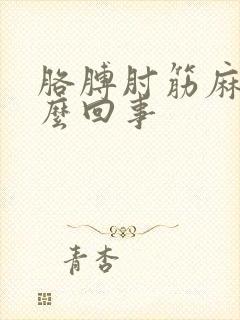 胳膊肘筋麻
麼回事
青杏